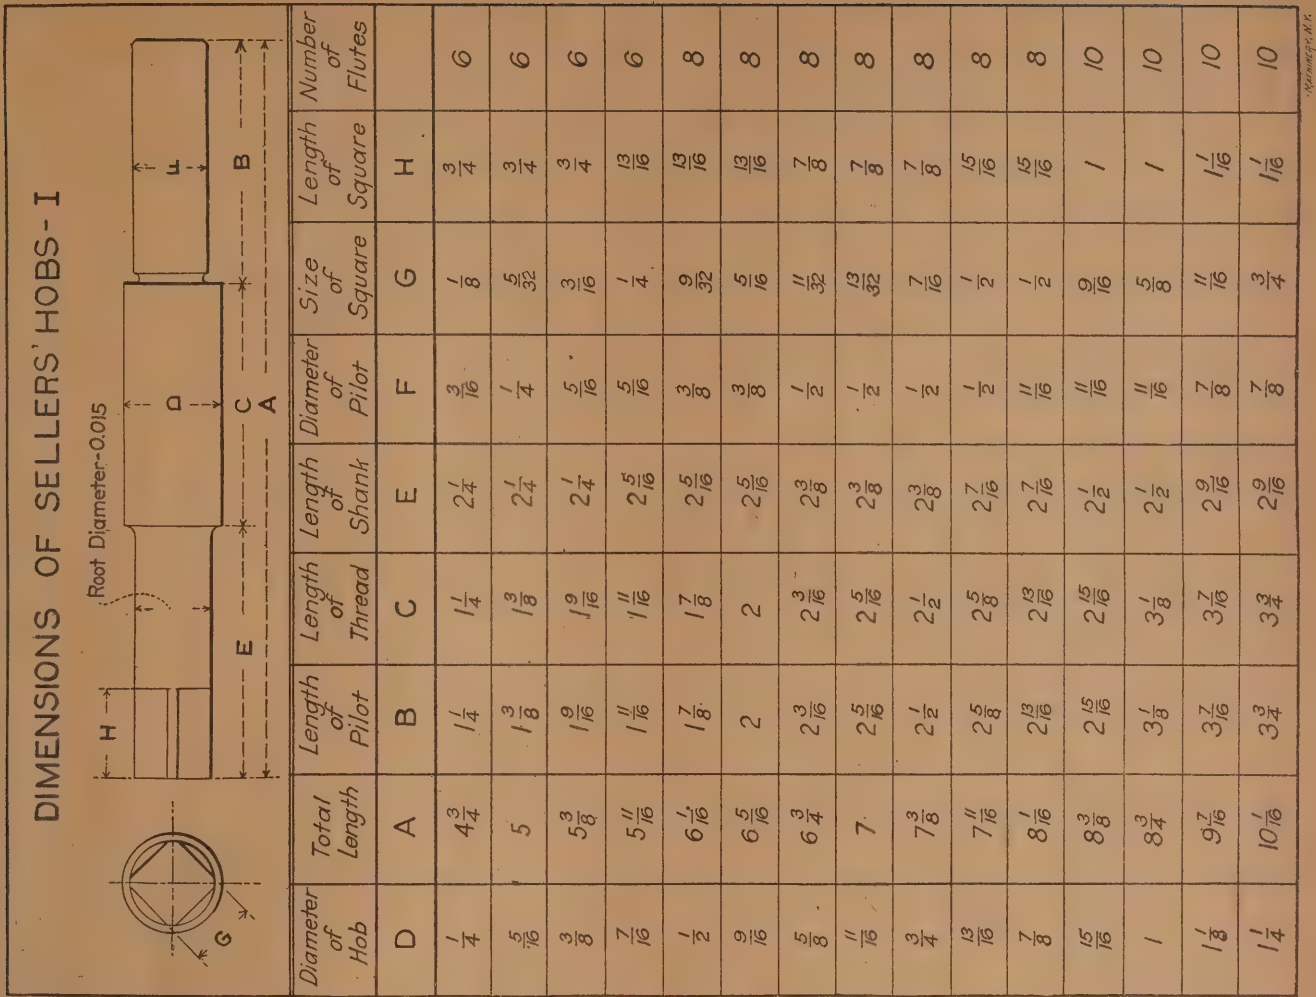 DIMENSIONS OF SELLERS' HOBS - I
Root Diameter-0.015
H
E
C
A
B
D
F
G
Diameter of Hob | Total Length | Length of Pilot | Length of Thread | Length of Shank | Diameter of Pilot | Size of Square | Length of Square | Number of Flutes
D | A | B | C | E | F | G | H
1/4 | 4 3/4 | 1 1/4 | 1 1/4 | 2 1/4 | 3/16 | 1/8 | 3/4 | 6
5/16 | 5 | 1 3/8 | 1 3/8 | 2 1/4 | 1/4 | 5/32 | 3/4 | 6
3/8 | 5 3/8 | 1 9/16 | 1 9/16 | 2 1/4 | 5/16 | 3/16 | 3/4 | 6
7/16 | 5 11/16 | 1 11/16 | 1 11/16 | 2 5/16 | 5/16 | 1/4 | 13/16 | 6
1/2 | 6 1/16 | 1 7/8 | 1 7/8 | 2 5/16 | 3/8 | 9/32 | 13/16 | 8
9/16 | 6 5/16 | 2 | 2 | 2 5/16 | 3/8 | 5/16 | 13/16 | 8
5/8 | 6 3/4 | 2 3/16 | 2 3/16 | 2 3/8 | 1/2 | 11/32 | 7/8 | 8
11/16 | 7 | 2 5/16 | 2 5/16 | 2 3/8 | 1/2 | 13/32 | 7/8 | 8
3/4 | 7 3/8 | 2 1/2 | 2 1/2 | 2 3/8 | 1/2 | 7/16 | 7/8 | 8
13/16 | 7 11/16 | 2 5/8 | 2 5/8 | 2 7/16 | 1/2 | 1/2 | 15/16 | 8
7/8 | 8 1/16 | 2 13/16 | 2 13/16 | 2 7/16 | 11/16 | 1/2 | 15/16 | 8
15/16 | 8 3/8 | 2 15/16 | 2 15/16 | 2 1/2 | 11/16 | 9/16 | 1 | 10
1 | 8 3/4 | 3 1/8 | 3 1/8 | 2 1/2 | 11/16 | 5/8 | 1 | 10
1 1/8 | 9 7/16 | 3 7/16 | 3 7/16 | 2 9/16 | 7/8 | 11/16 | 1 1/16 | 10
1 1/4 | 10 1/16 | 3 3/4 | 3 3/4 | 2 9/16 | 7/8 | 3/4 | 1 1/16 | 10
Machinery, N.Y.